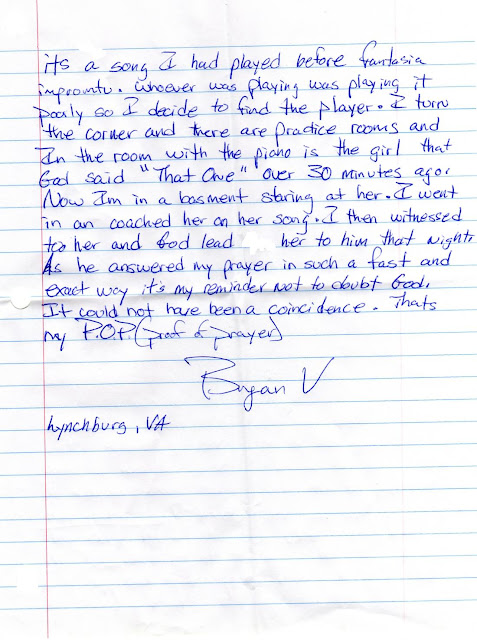 its a song I had played before fantasia
impromtu. Whoever was playing was playing it
poorly so I decide to find the player. I turn
the corner and there are practice rooms and
In the room with the piano is the girl that
God said "That One" over 30 minutes ago.
Now Im in a basment staring at her. I went
in an coached her on her song. I then witnessed
to her and God lead her to him that night.
As he answered my prayer in such a fast and
exact way it's my reminder not to doubt God.
It could not have been a coincidence. Thats
my P.O.P. (proof of prayer)
Bryan V
Lynchburg, VA